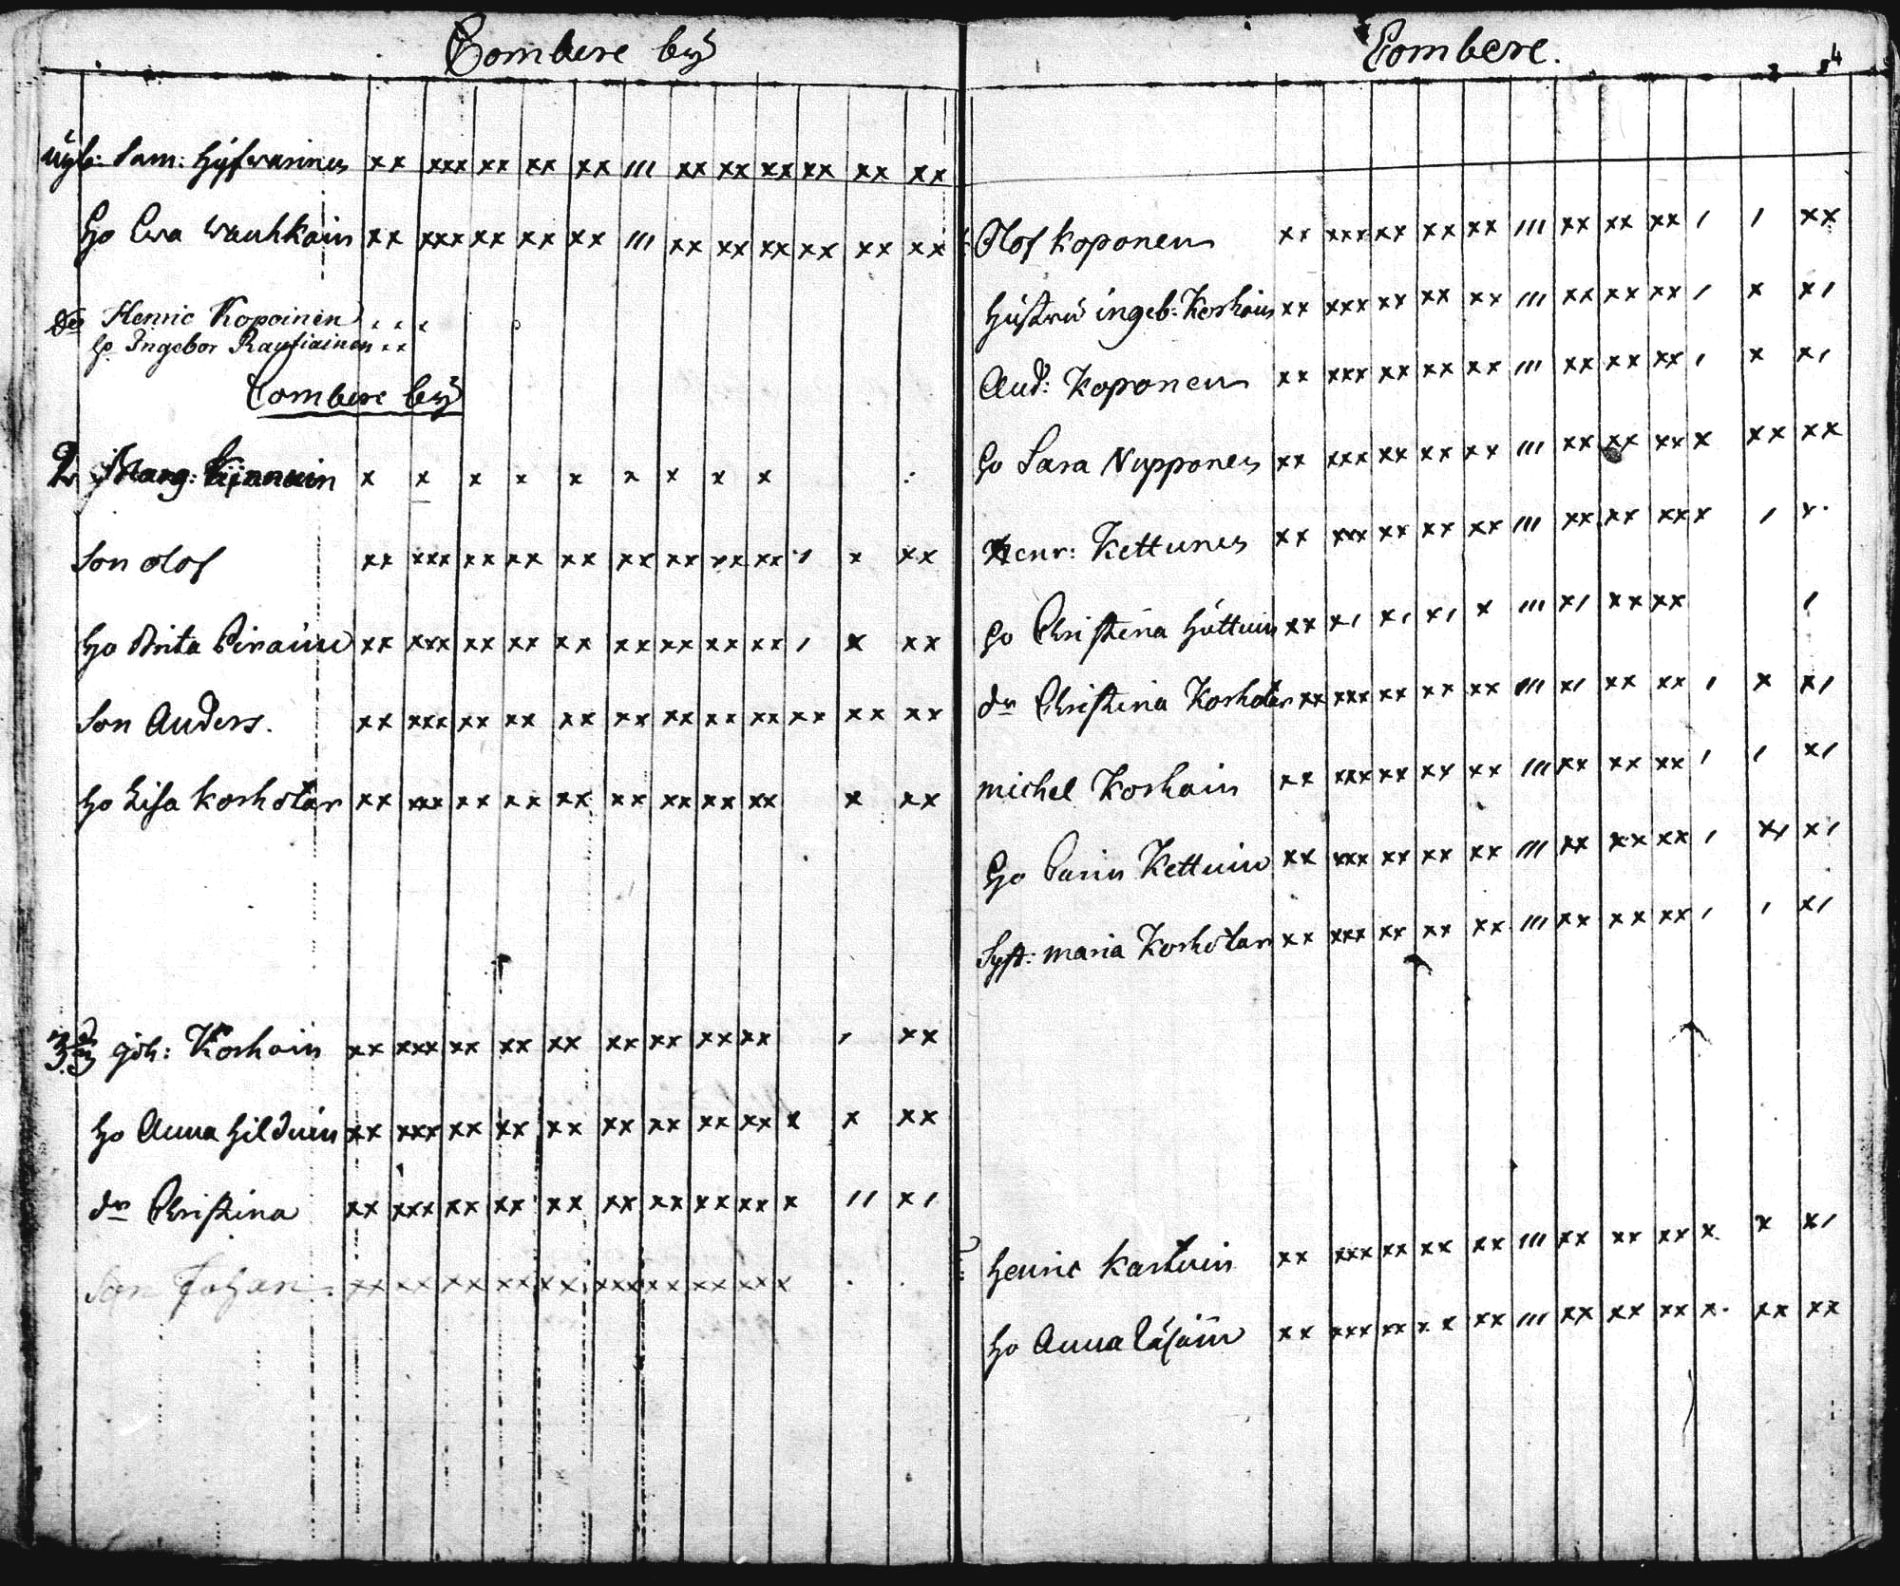 Combere by
Sam: Hyfvarinen xx xxx xx xx xx /// xx xx xx xx xx xx
Ho Ewa Wauhkain xx xxx xx xx xx /// xx xx xx xx xx xx
Henric Kopoinen
Ho Ingebor Rautiainen
Combere by
2 Marg: x x x x x x x x x
Son Olof xx xxx xx xx xx xx xx xx xx / x xx
Ho Brita Pirain xx xxx xx xx xx xx xx xx xx / x xx
Son Anders. xx xxx xx xx xx xx xx xx xx xx xx xx
Ho Lisa Korhotar xx xxx xx xx xx xx xx xx xx x xx
3 Joh: Korhoin xx xxx xx xx xx xx xx xx xx / xx
Ho Anna Hilduin xx xxx xx xx xx xx xx xx xx x x xx
dr Christina xx xxx xx xx xx xx xx xx xx x // x/
Son Johan xx xx xx xx xx xxx xx xx xx x
Combere. 4
Olof Koponen xx xxx xx xx xx /// xx xx xx / / xx
Hustru Ingeb: Korhoin xx xxx xx xx xx /// xx xx xx / x x/
And: Koponen xx xxx xx xx xx /// xx xx xx / x x/
Ho Sara Nupponen xx xxx xx xx xx /// xx xx xx x xx xx
Henr: Kettunen xx xxx xx xx xx /// xx xx xx x /
Ho Christina Huttuin xx x/ x/ x/ x /// x/ xx xx /
dr Christina Korhotar xx xxx xx xx xx /// x/ xx xx / x x/
Michel Korhain xx xxx xx xx xx /// xx xx xx / / x/
Ho Carin Kettuin xx xxx xx xx xx /// xx xx xx / x/ x/
Syst: Maria Korhotar xx xxx xx xx xx /// xx xx xx / / x/
Henric Kastuin xx xxx xx xx xx /// xx xx xx x x x/
Ho Anna xx xxx xx xx xx /// xx xx xx x xx xx